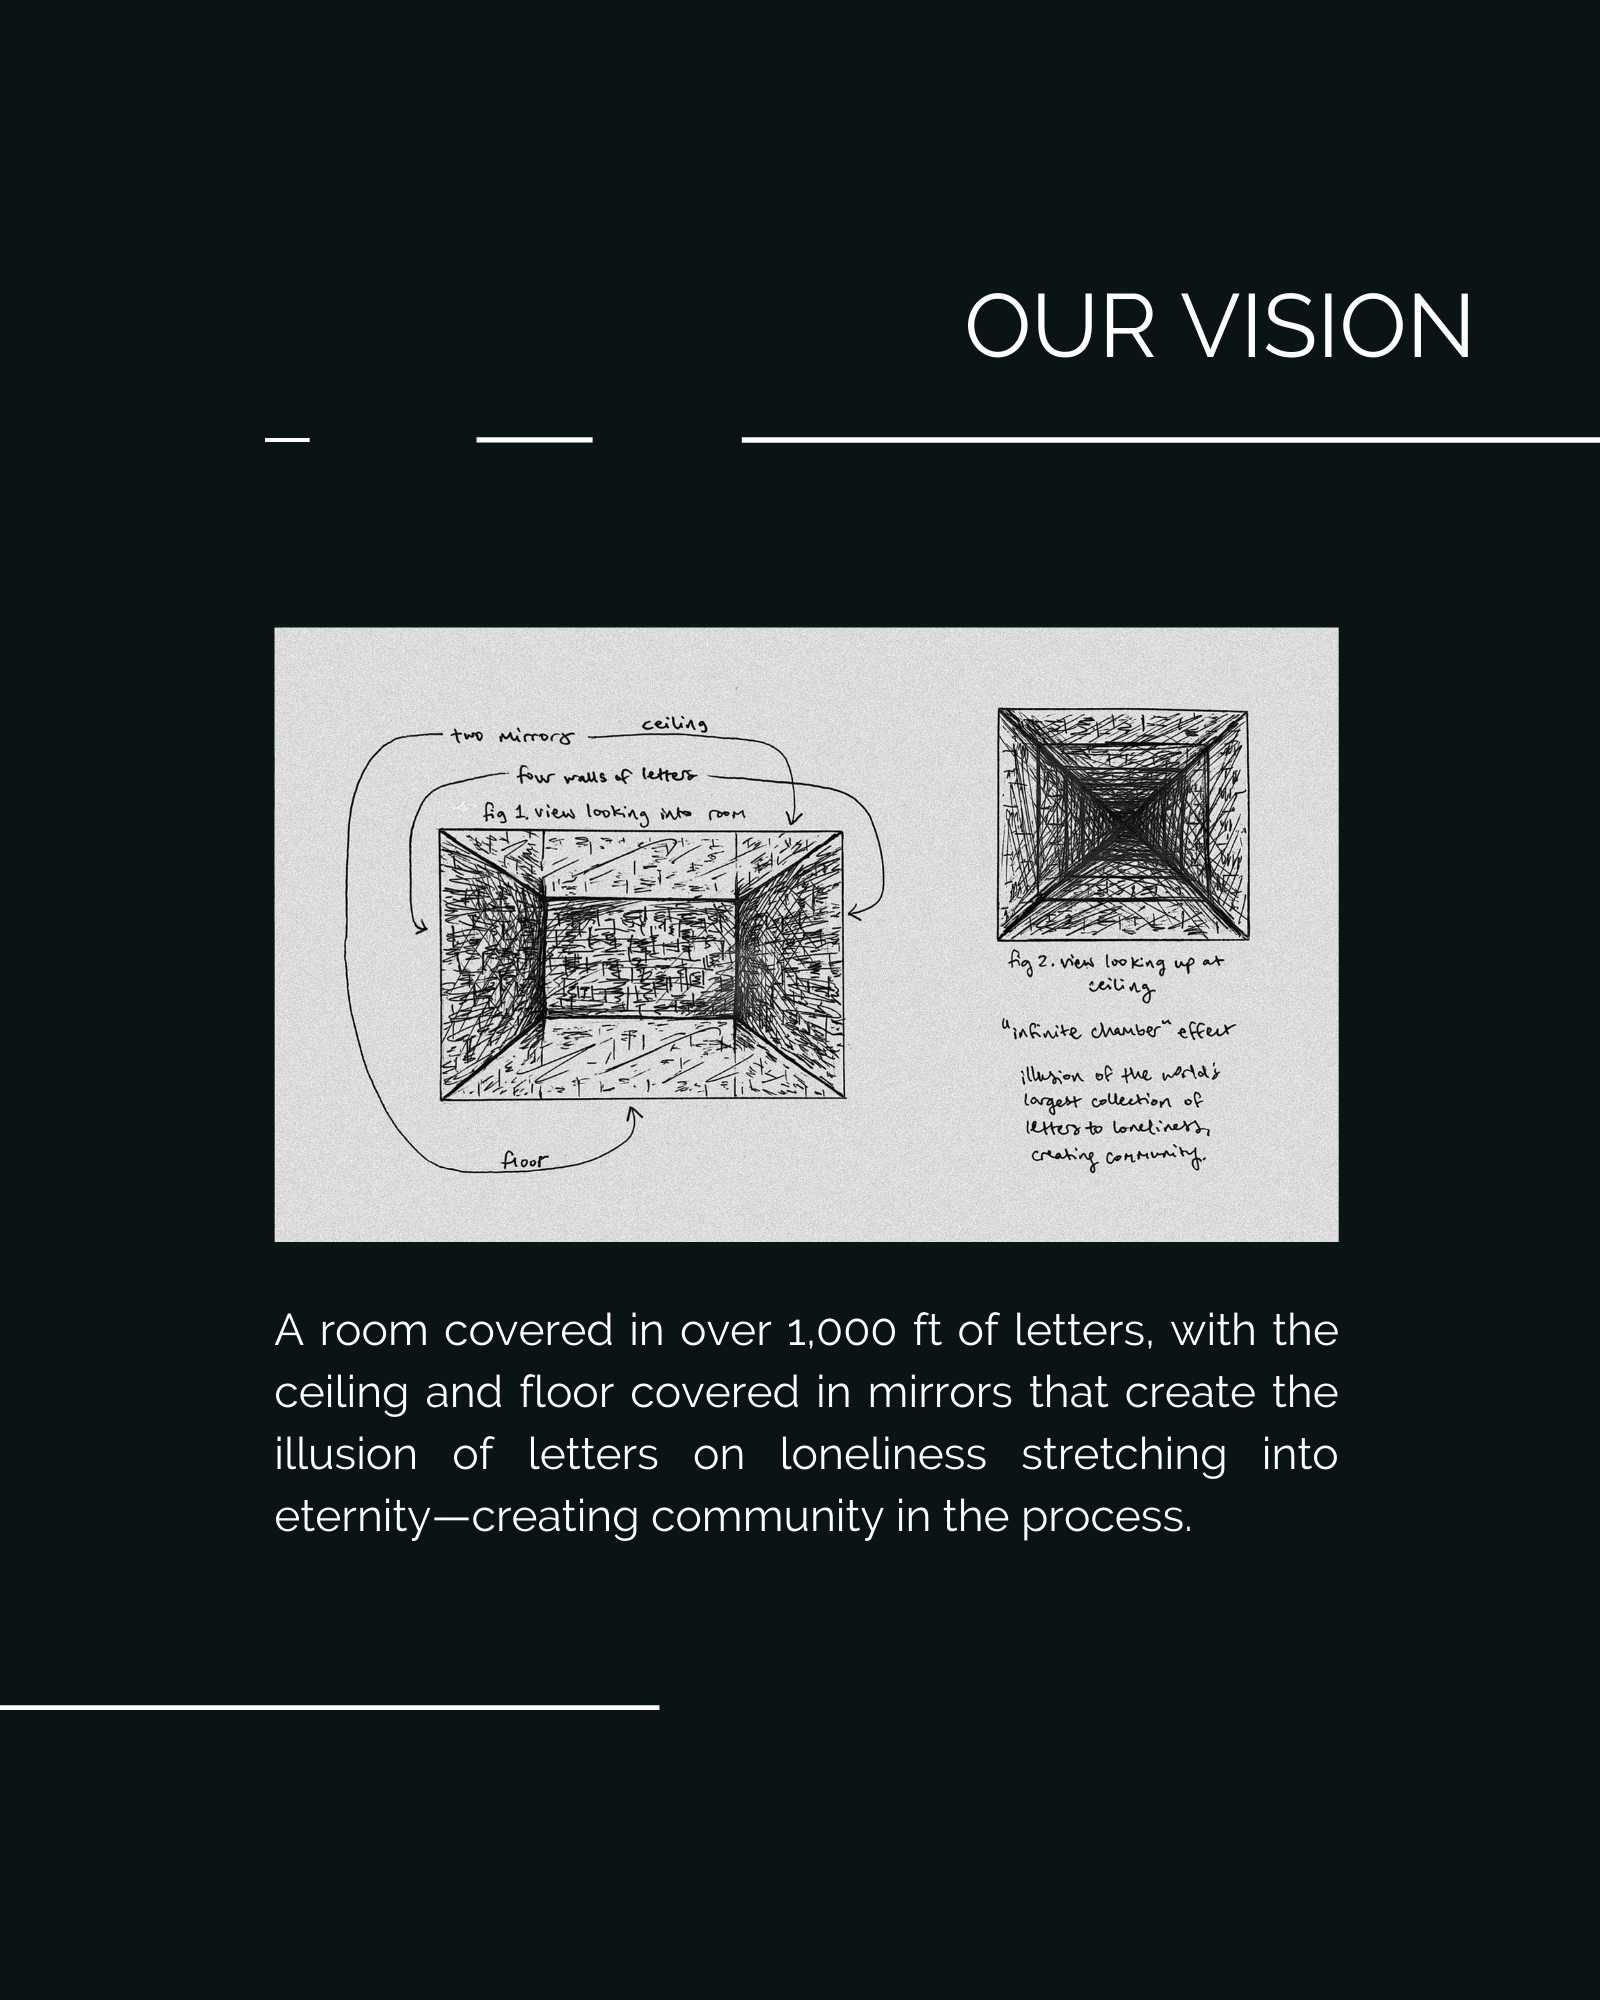 OUR VISION
two mirrors
ceiling
four walls of letters
fig 1. view looking into room
floor
fig 2. view looking up at
ceiling
"infinite chamber" effect
illusion of the world's
largest collection of
letters to loneliness,
creating community.
A room covered in over 1,000 ft of letters, with the
ceiling and floor covered in mirrors that create the
illusion of letters on loneliness stretching into
eternity—creating community in the process.